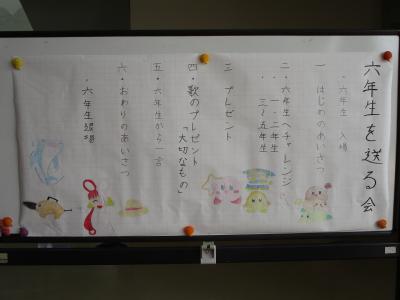 六年生を送る会
・六年生 入場
一 はじめのあいさつ
二 六年生へチャレンジ
・一・二年生
・三〜五年生
三 プレゼント
四 歌のプレゼント
「大切なもの」
五 六年生から一言
六 おわりのあいさつ
・六年生退場